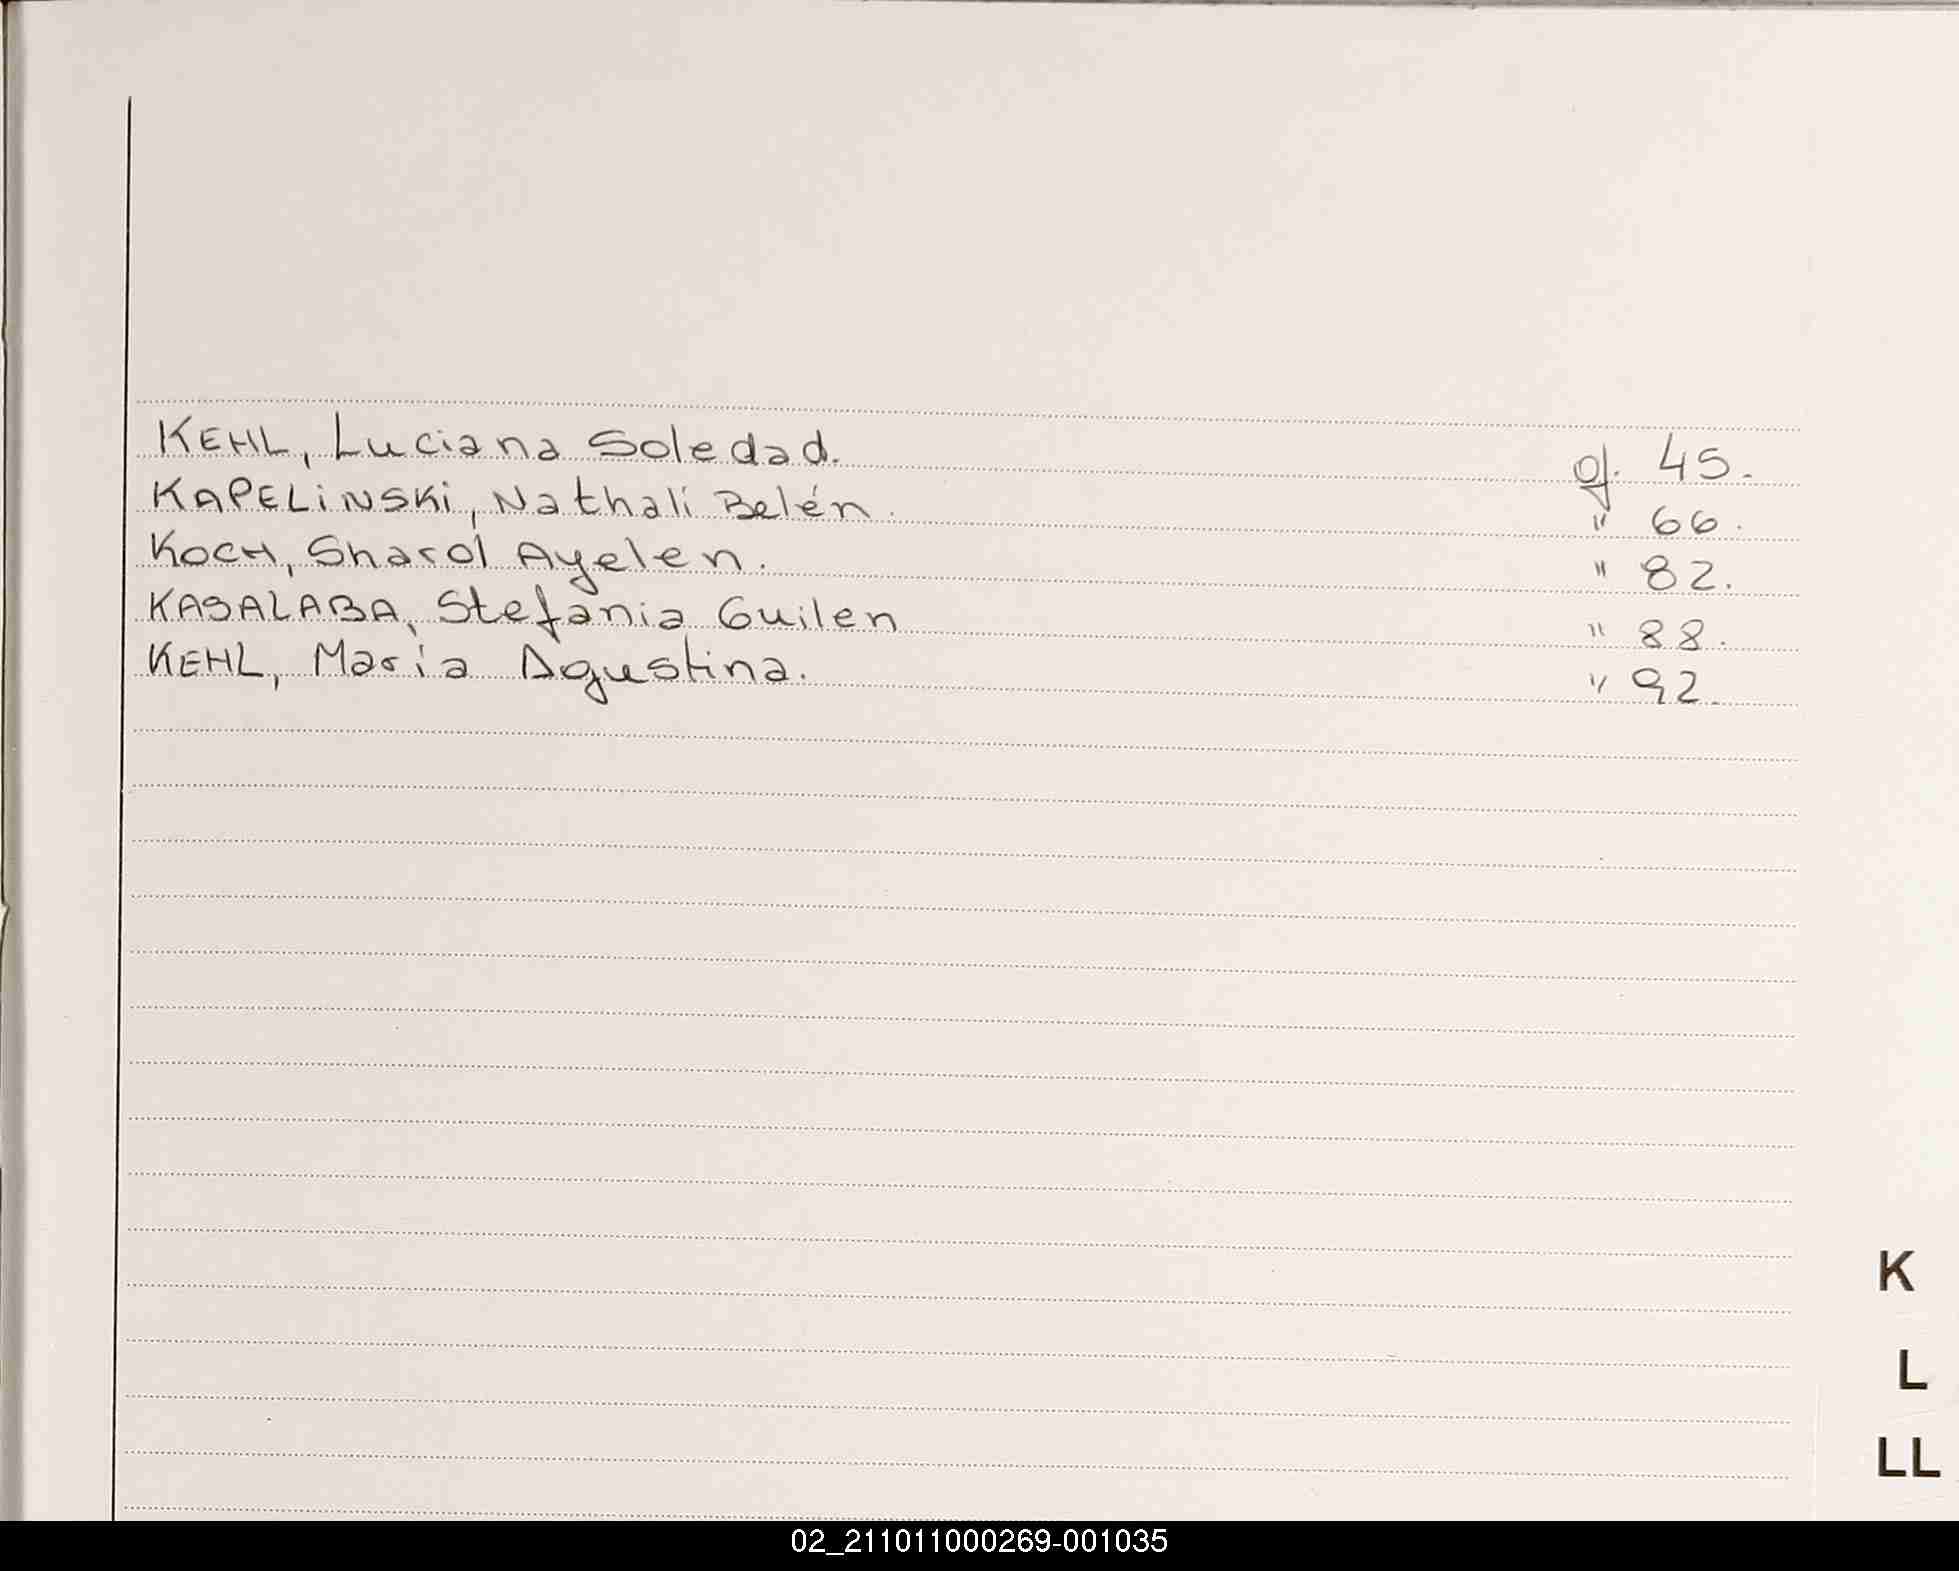 KEHL, Luciana Soledad. of. 45.
KAPELINSKI, Nathali Belén. " 66.
KOCH, Sharol Ayelen. " 82.
KASALABA, Stefania Guilen " 88.
KEHL, Maria Agustina. " 92.
K
L
LL
02_211011000269-001035